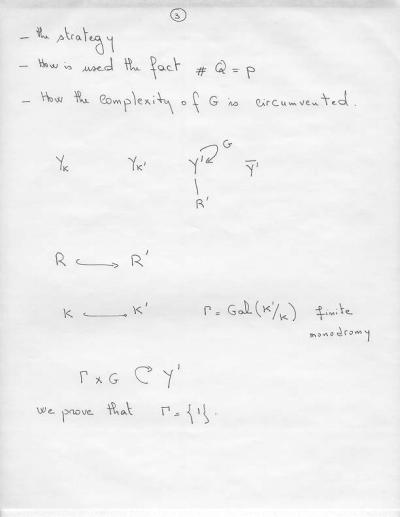 3
- the strategy
- How is used the fact # Q = p
- How the complexity of G is circumvented.
Y_K Y_K' Y' G Ȳ'
R'
R ↪ R'
K ↪ K' Γ = Gal(K'/K) finite
monodromy
Γ × G ↻ Y'
we prove that Γ = {1}.